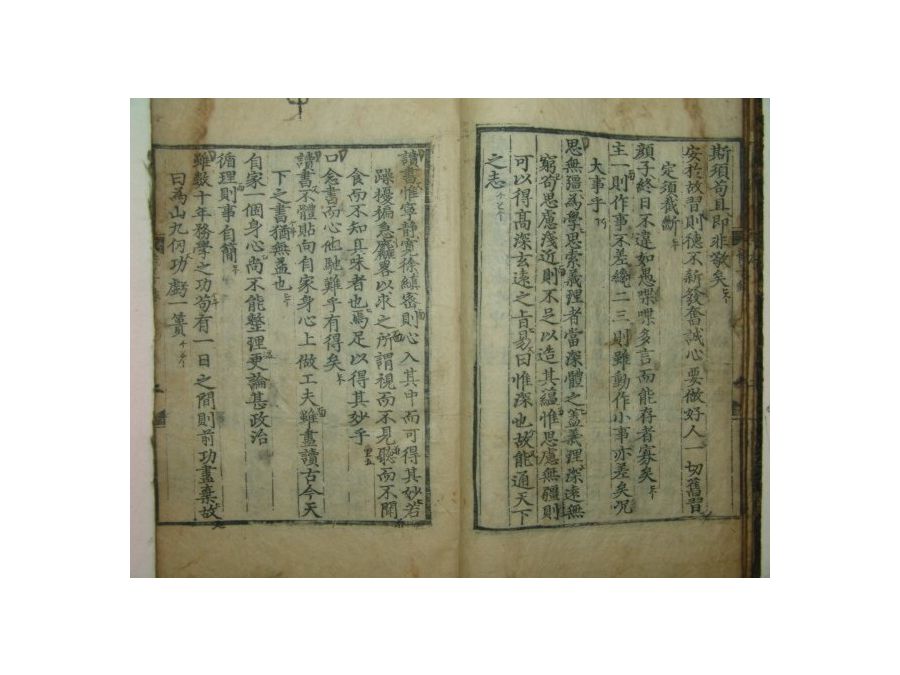 斯須苟且即非敬矣
安於故習則德不新發奮誠心要做好人一切舊習
定須裁斷
顔子終日不違如愚喋喋多言而能存者寡矣
主一則作事不差纔二三則雖動作小事亦差矣况
大事乎
思無疆為學思索義理者當深體之蓋義理深遠無
窮苟思慮淺近則不足以造其蘊惟思慮無疆則
可以得高深玄遠之旨易曰惟深也故能通天下
之志
讀書惟寧靜寛徐縝密則心入其中而可得其妙若
躁擾褊急麤畧以求之所謂視而不見聽而不聞
食而不知其味者也焉足以得其妙乎
口念書而心他馳難乎有得矣
讀書不體貼向自家身心上做工夫雖盡讀古今天
下之書猶無益也
自家一個身心尚不能整理更論甚政治
循理則事自簡
雖數十年務學之功苟有一日之間則前功盡棄故
曰為山九仞功虧一簣